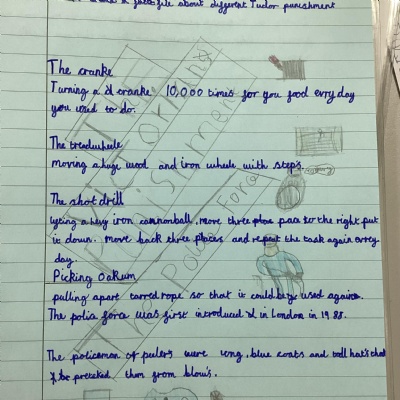 about different Tudor punishment
The cranke
Turning a cranke 10,000 times for you food evry day
you used to do.
The treadwheele
Moving a huge wood and iron wheele with steps.
The shot drill
a hevy iron cannonball, move three pace to the right put
it down. move back three places and repeat the task again evrey
day.
Picking Oakum
pulling apart tarred rope so that it could be used again.
The police force was first introduced in London in 19 88.
The policeman of pelers were long, blue coats and tall hat's that
them from blow's.
The Police Force